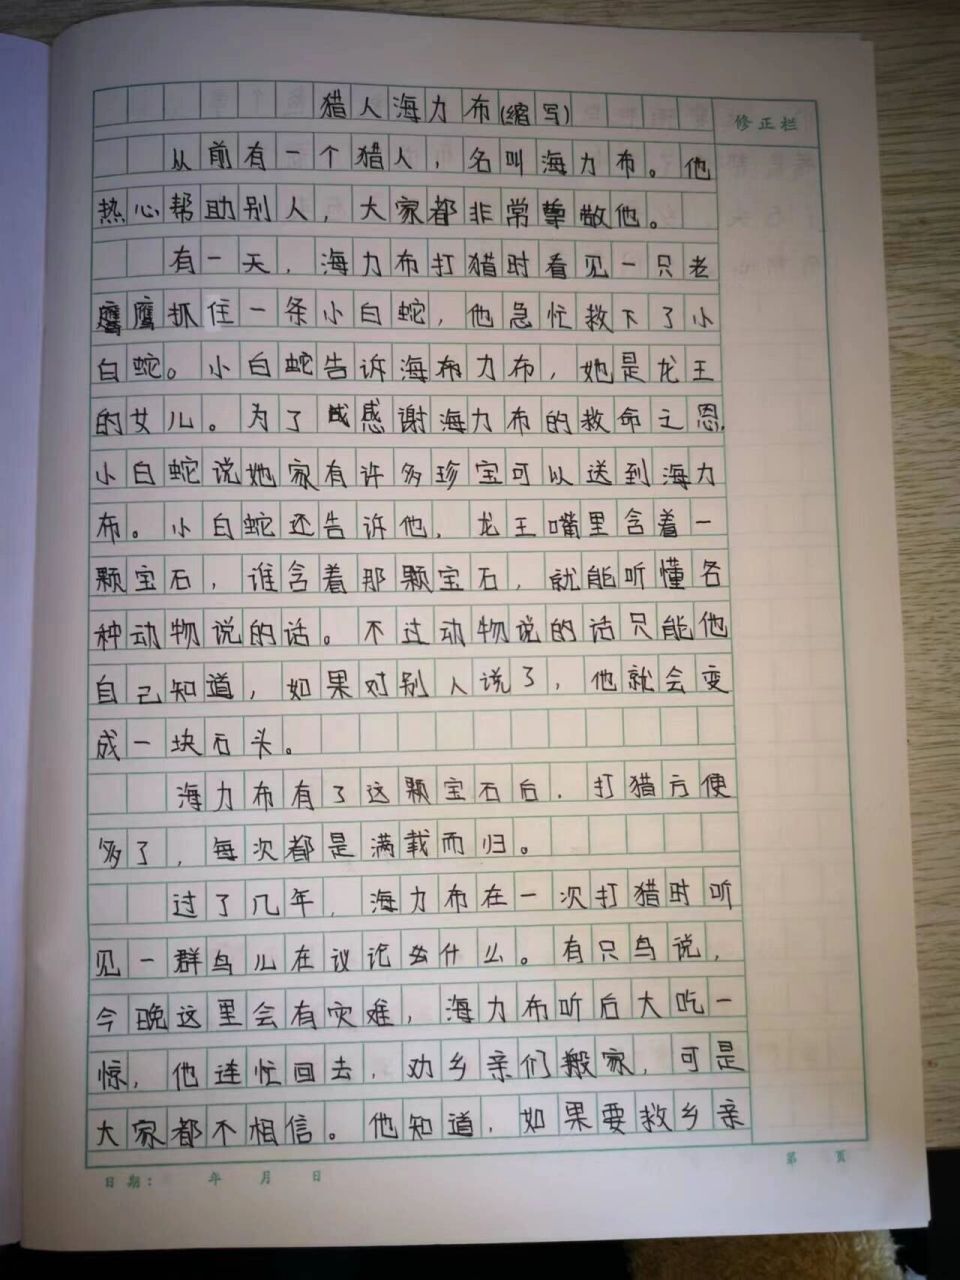 猎人海力布(缩写)
修正栏
从前有一个猎人，名叫海力布。他
热心帮助别人，大家都非常尊敬他。
有一天，海力布打猎时看见一只老
鹰抓住一条小白蛇，他急忙救下了小
白蛇。小白蛇告诉海布力布，她是龙王
的女儿。为了感谢海力布的救命之恩，
小白蛇说她家有许多珍宝可以送到海力
布。小白蛇还告诉他，龙王嘴里含着一
颗宝石，谁含着那颗宝石，就能听懂各
种动物说的话。不过动物说的话只能他
自己知道，如果对别人说了，他就会变
成一块石头。
海力布有了这颗宝石后，打猎方便
多了，每次都是满载而归。
过了几年，海力布在一次打猎时听
见一群鸟儿在议论什么。有只鸟说，
今晚这里会有灾难，海力布听后大吃一
惊，他连忙回去，劝乡亲们搬家，可是
大家都不相信。他知道，如果要救乡亲
日期： 年 月 日
第 页